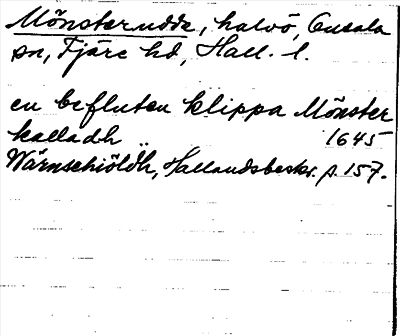 Mönsterudde, halvö, Onsala
sn, Fjäre hd, Hall. l.
en befluten klippa Mönster
kalladh 1645
Wärnschiöldh, Hallandsbeskr. p. 157.